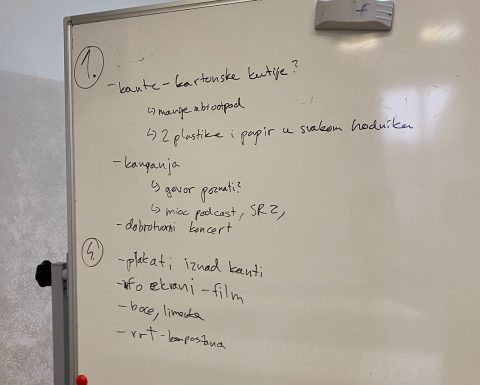 1.
- kante - kartonske kutije?
↳ manje biootpad
↳ 2 plastike i papir u svakom hodniku
- kampanja
↳ govor poznati?
↳ mioc podcast, SRZ,
- dobrotvorni koncert
- plakati iznad kanti
ekrani - film
- boce, limenke
- vrt - kompostana